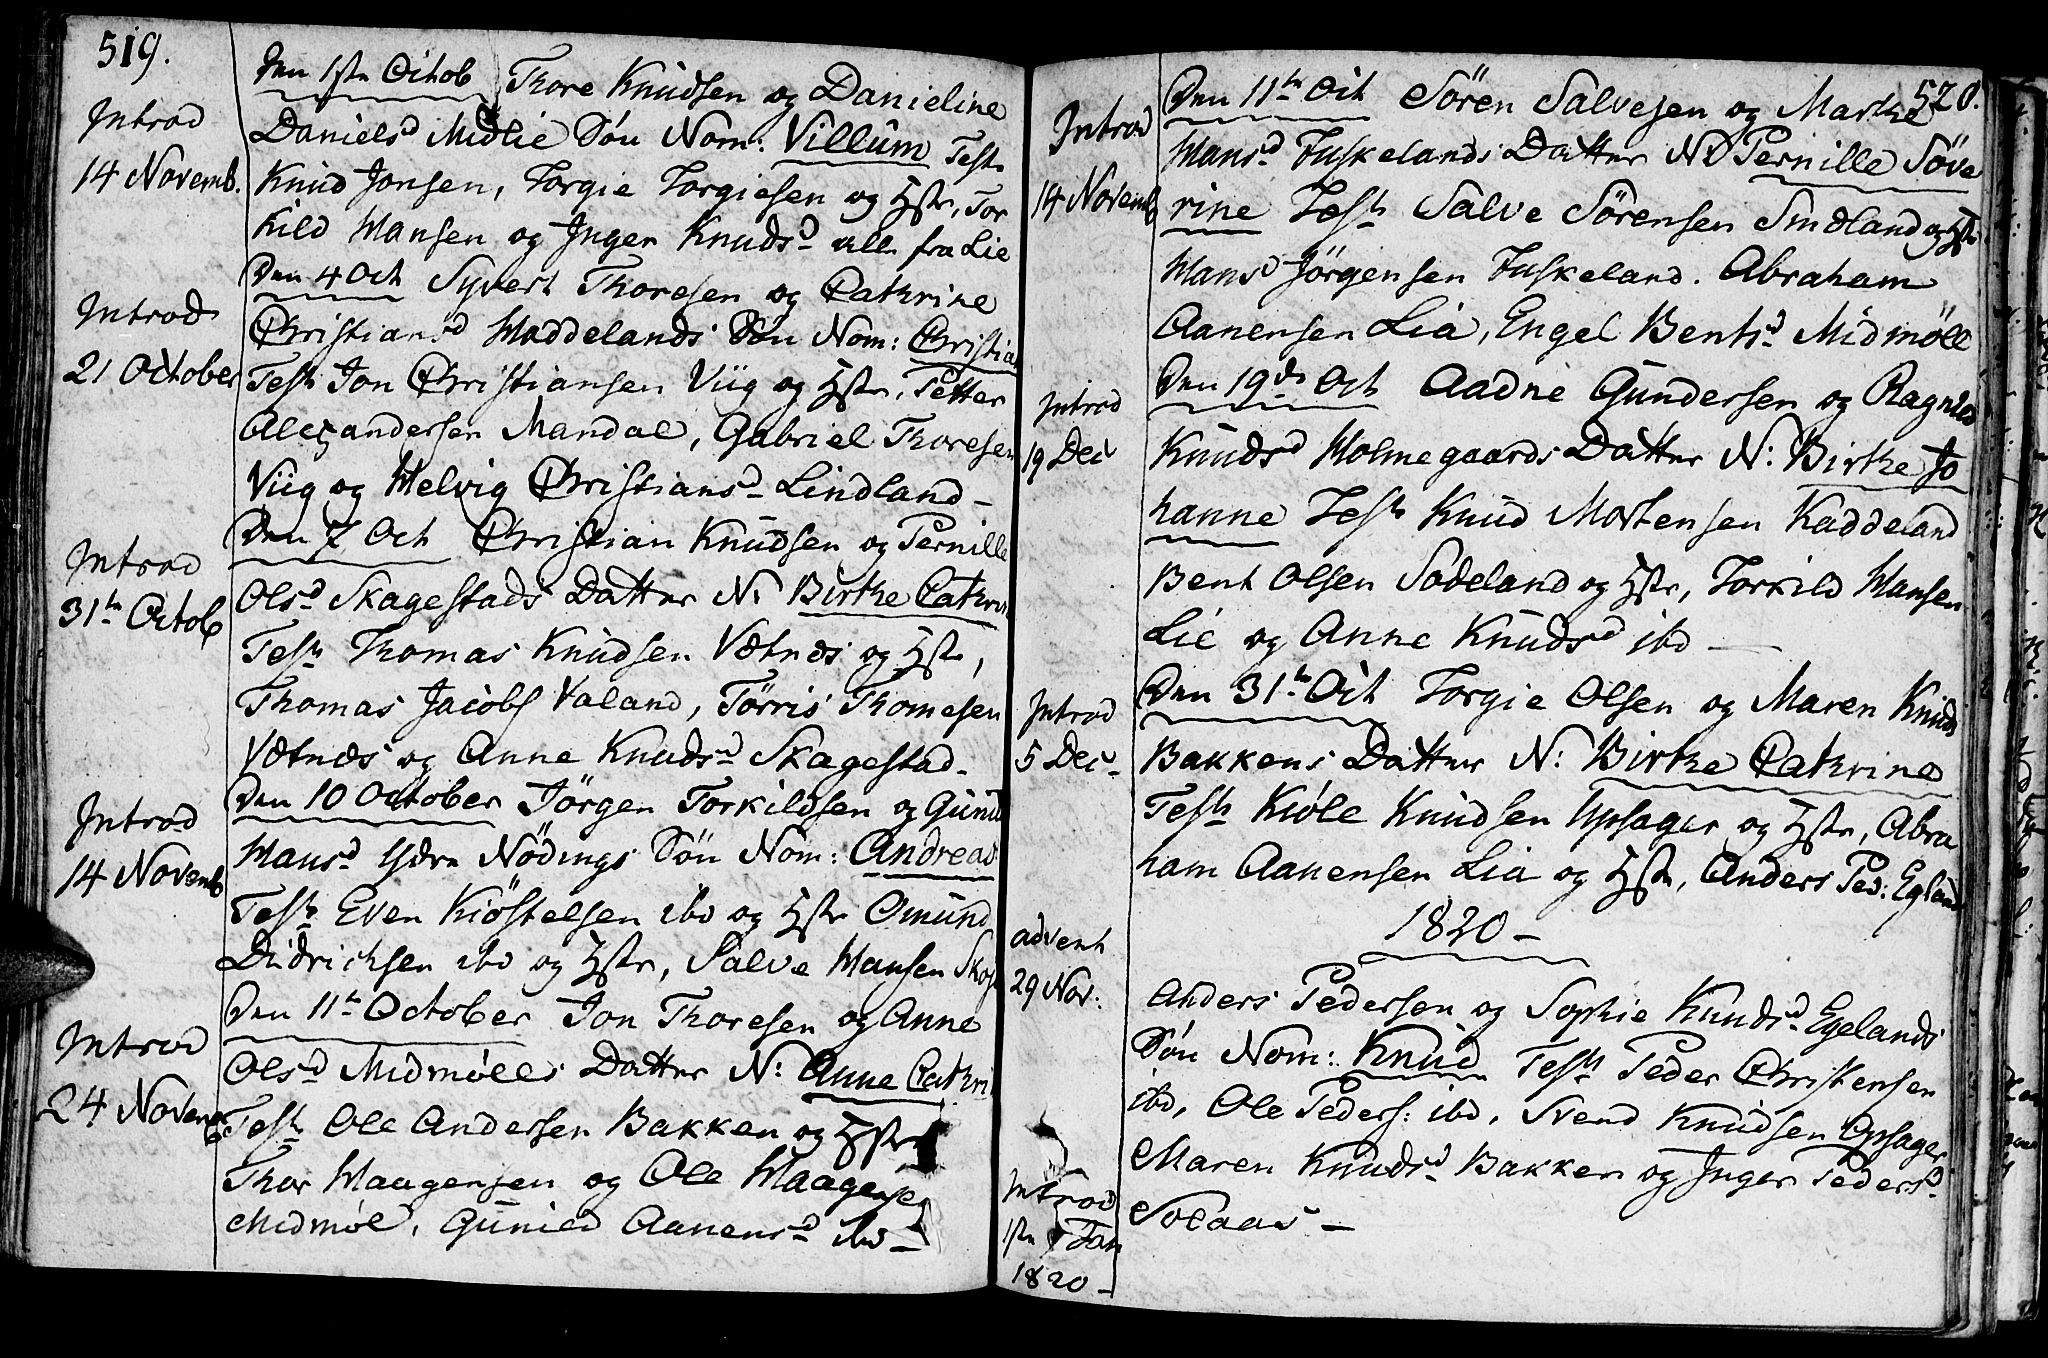 519.
Introd
14 Novemb.
Den 1ste Octob Thore Knudsen og Danieline
Danielsd Midlie Søn Nom: Villum Test
Knud Jonsen, Torgie Torgiesen og Hstr, Tor
kild Hansen og Inger Knudsd alle fra Lie
Introd
21 October
Den 4 Oct Syvert Thoresen og Cathrine
Christiansd Haddelands Søn Nom: Christia
Test Jon Christiansen Viig og Hstr, Petter
Alexandersen Mandal, Gabriel Thoresen
Viig og Helvig Christiansd Lindland –
Introd
31te Octob
Den 7 Oct Christian Knudsen og Pernille
Olsd Skagestads Datter N: Birthe Cathri
Test Thomas Knudsen Vætnes og Hstr,
Thomas Jacobs Valand, Tørris Thomesen
Vætnes og Anne Knudsd Skagestad –
Introd
14 Novemb
Den 10 October Jørgen Torkildsen og Gunild
Hansd Ydre Nødings Søn Nom: Andreas
Test Even Kiøstelsen ibd og Hstr Omund
Didrichsen ibd og Hstr, Salve Hansen
Introd
24 Novemb
Den 11te October Jon Thoresen og Anne
Olsd Midmølls Datter N: Anne Cathri
Test Ole Andersen Bakken og Hstr
Thor Haagensen og Ole Haagense
Midmøl, Gunild Aanensd ibd –
520.
Introd
14 Novemb
Den 11te Oct Søren Salvesen og Marthe
Hansd Fuskelands Datter N: Pernille Seve
rine Test Salve Sørensen Smdland og Hstr
Hans Jørgensen Fuskeland. Abraham
Aanensen Lia, Engel Bentsd Midmøll
Introd
19 Dec
Den 19de Oct Aadne Gundersen og Ragnild
Knudsd Holmegaards Datter N: Birthe Jo
hanne Test Knud Mortensen Kaddeland
Bent Olsen Sodeland og Hstr, Torkild Hansen
Lie og Anne Knudsd ibd –
Introd
5 Dec –
Den 31te Oct Torgie Olsen og Maren Knuds
Bakkens Datter N: Birthe Cathrine
Test Kiøle Knudsen Upsager og Hstr, Abra
ham Aanensen Lia og Hstr, Anders Ped: Egland
1820 –
advent
29 Nov:
Anders Pedersen og Sophie Knudsd Egelands
Søn Nom: Knud Test Peder Christensen
ibd, Ole Peders: ibd, Svend Knudsen Opsager
Maren Knudsd Bakken og Inger Pedersd
Solaas –
Introd
1ste Jan
1820 –